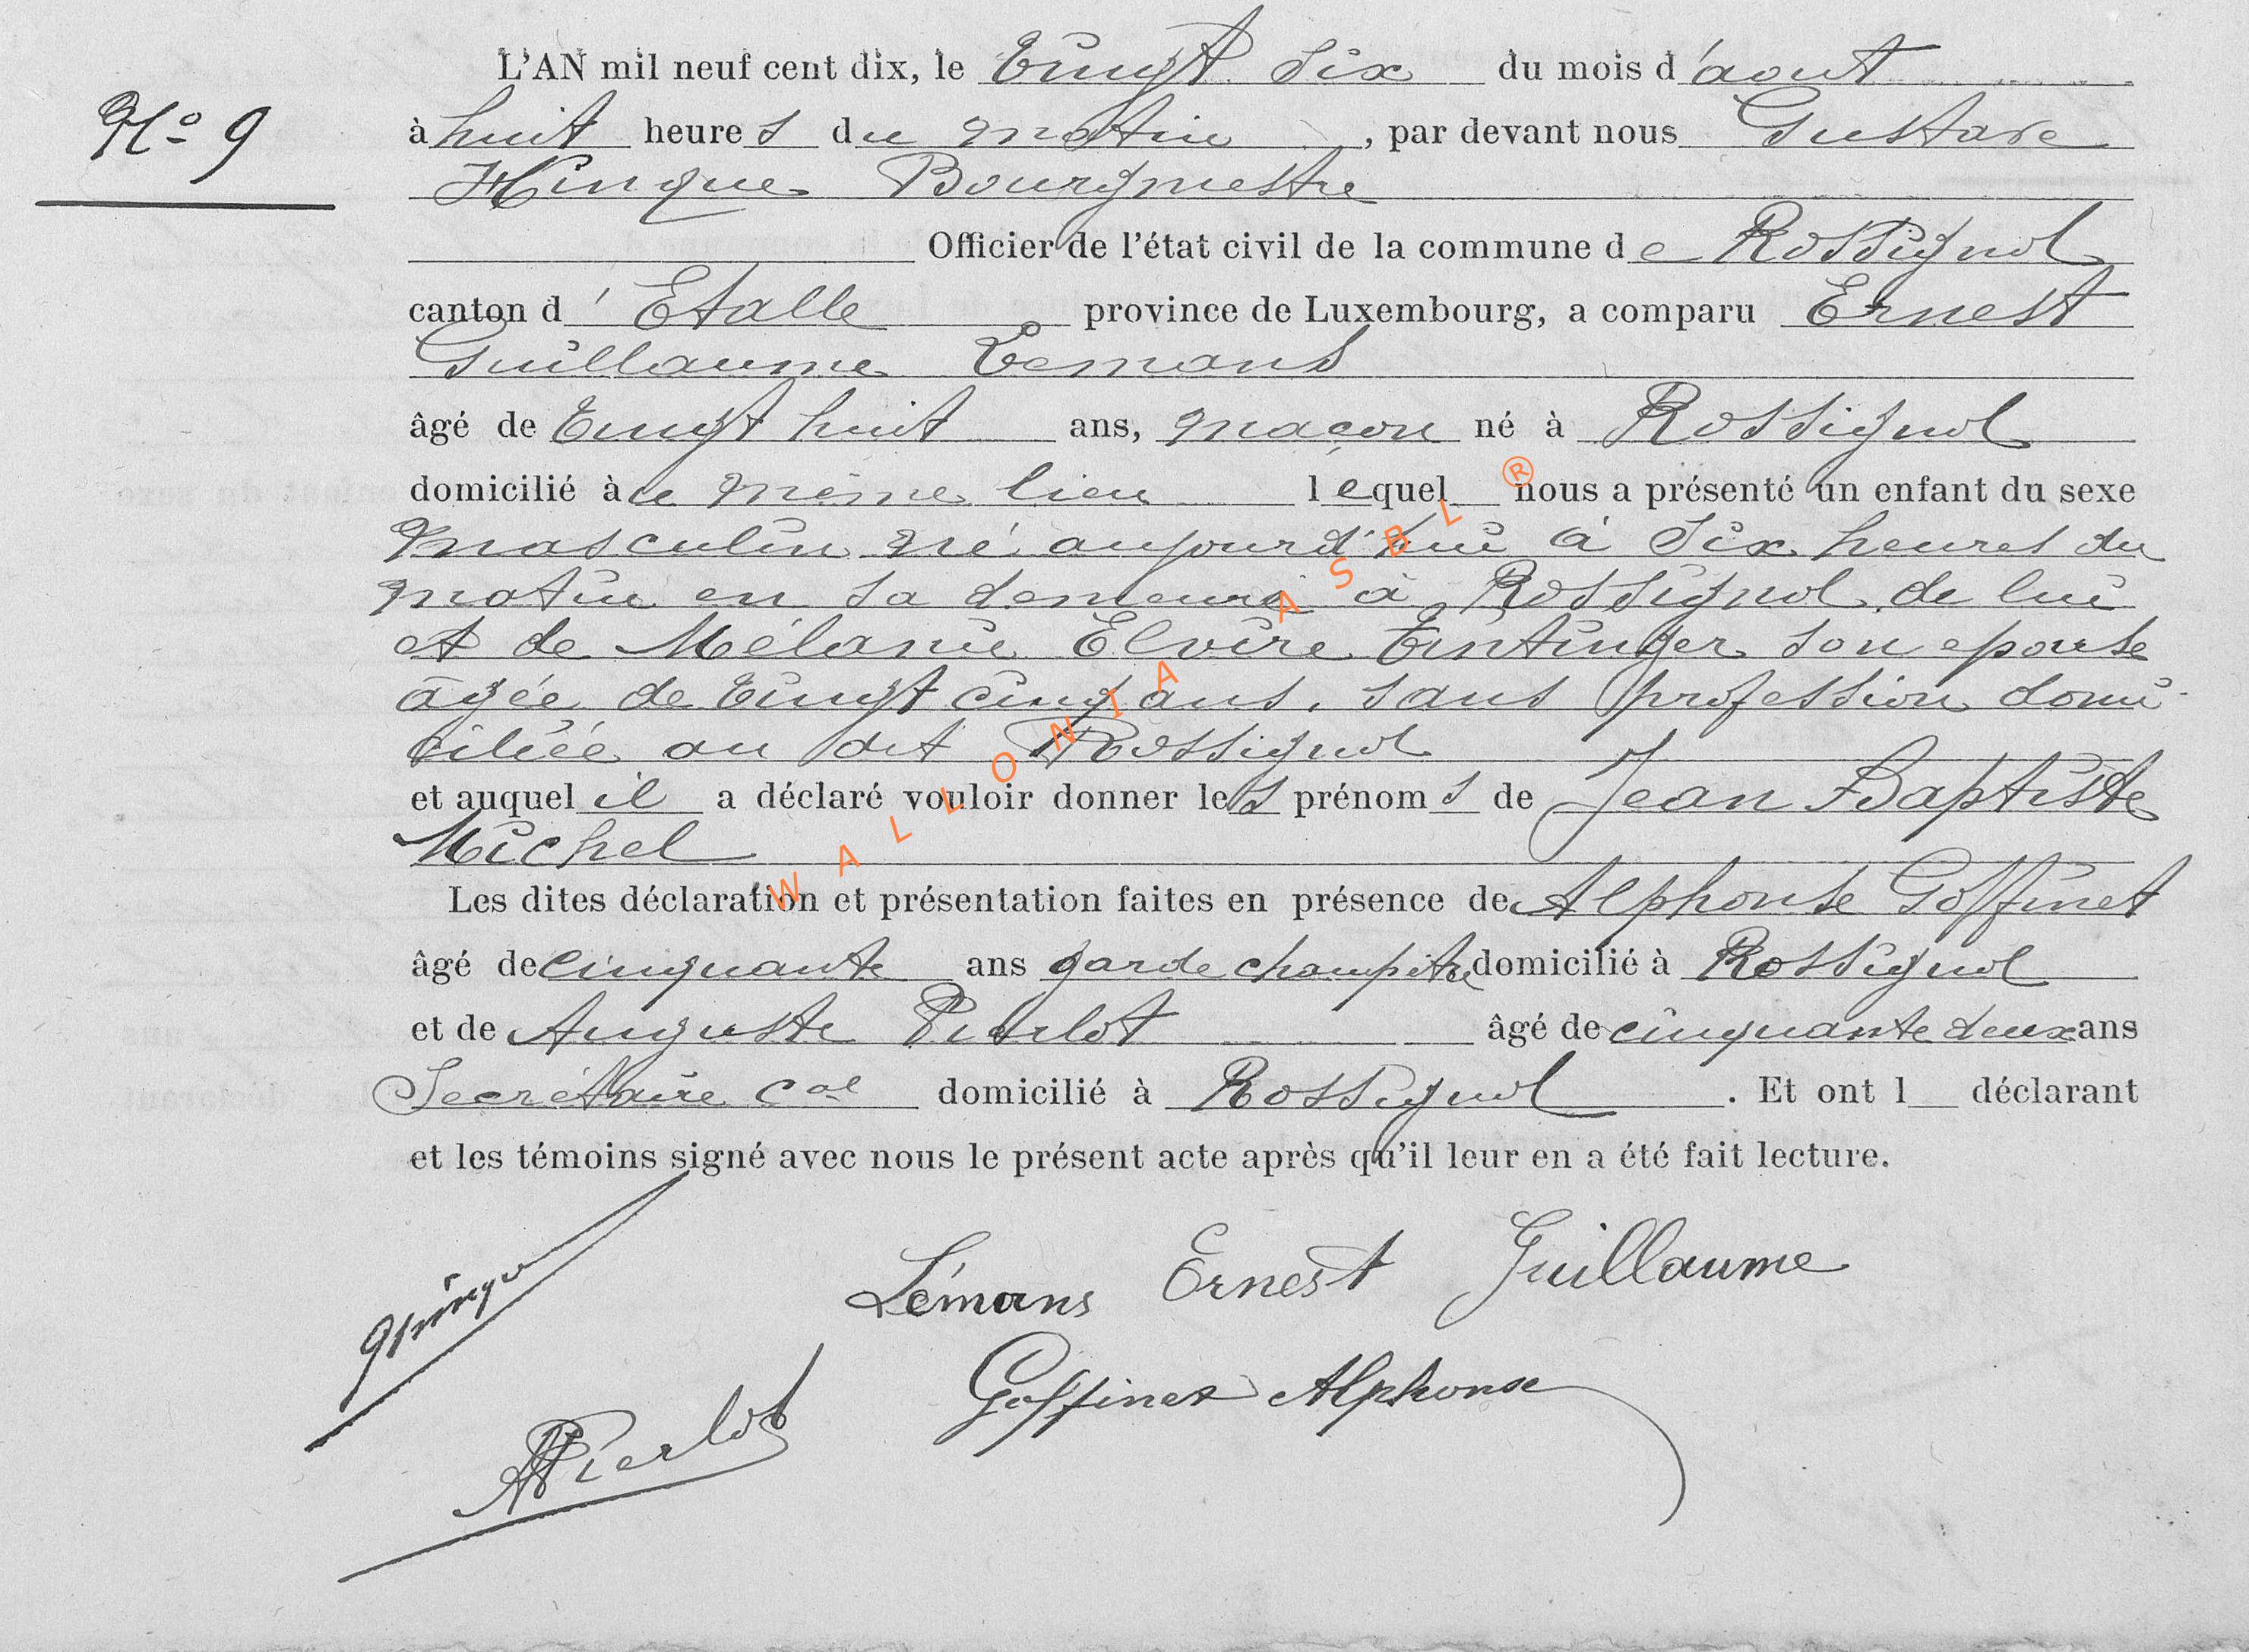 L'AN mil neuf cent dix, le vingt six du mois d'aout
N° 9
à huit heures du matin, par devant nous Gustave
Hinque Bourgmestre
Officier de l'état civil de la commune de Rossignol
canton d'Etalle province de Luxembourg, a comparu Ernest
Guillaume Lemans
âgé de vingt huit ans, maçon né à Rossignol
domicilié à ce même lieu lequel nous a présenté un enfant du sexe
masculin né aujourd'hui à six heures du
matin en sa demeure à Rossignol de lui
et de Mélanie Elvire son epouse
âgée de vingt cinq ans, sans profession domi-
ciliée au dit Rossignol
et auquel il a déclaré vouloir donner les prénoms de Jean Baptiste
Michel
Les dites déclaration et présentation faites en présence de Alphonse Goffinet
âgé de cinquante ans garde champêtre domicilié à Rossignol
et de Auguste Pierlot âgé de cinquante deux ans
Secrétaire cal domicilié à Rossignol. Et ont l déclarant
et les témoins signé avec nous le présent acte après qu'il leur en a été fait lecture.
Lémans Ernest Guillaume
GHinque
Goffinet Alphonse
APierlot
WALLONIA ASBL ®